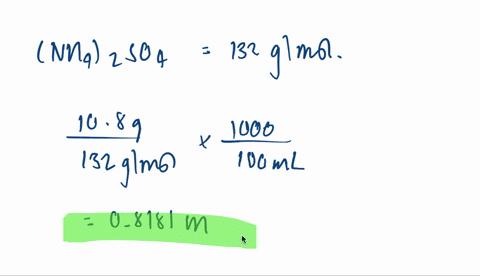 (NH4)2SO4 = 132 g/mol.
10.8g / 132 g/mol × 1000 / 100 mL
= 0.8181 m